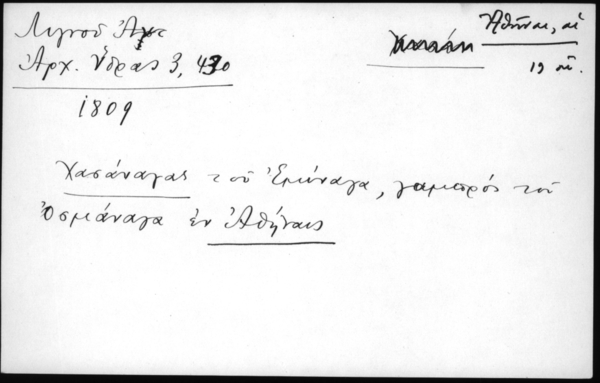 Λιγνοῦ Ἀρχ
Ἀρχ. Ὕδρας 3, 430
1809
Ἀθῆναι, αἱ
19 αἰ.
Χασάναγας τοῦ Ἐμίναγα, γαμπρός τοῦ
Ὀσμάναγα ἐν Ἀθήναις